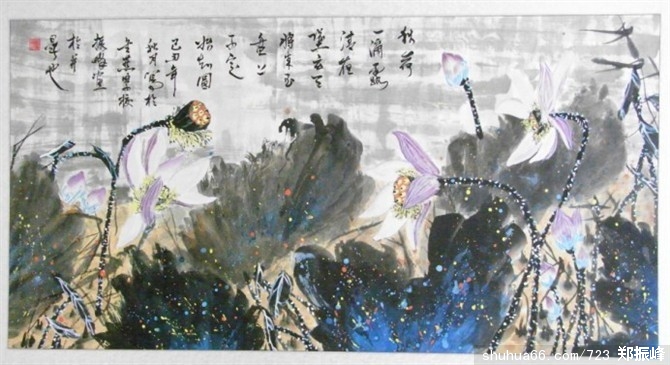 秋荷
一滴露
清夜
坠玄天
将来玉
盘上
不定
始知圆
己丑年
秋月写於
shuhua66.com/723 郑振峰